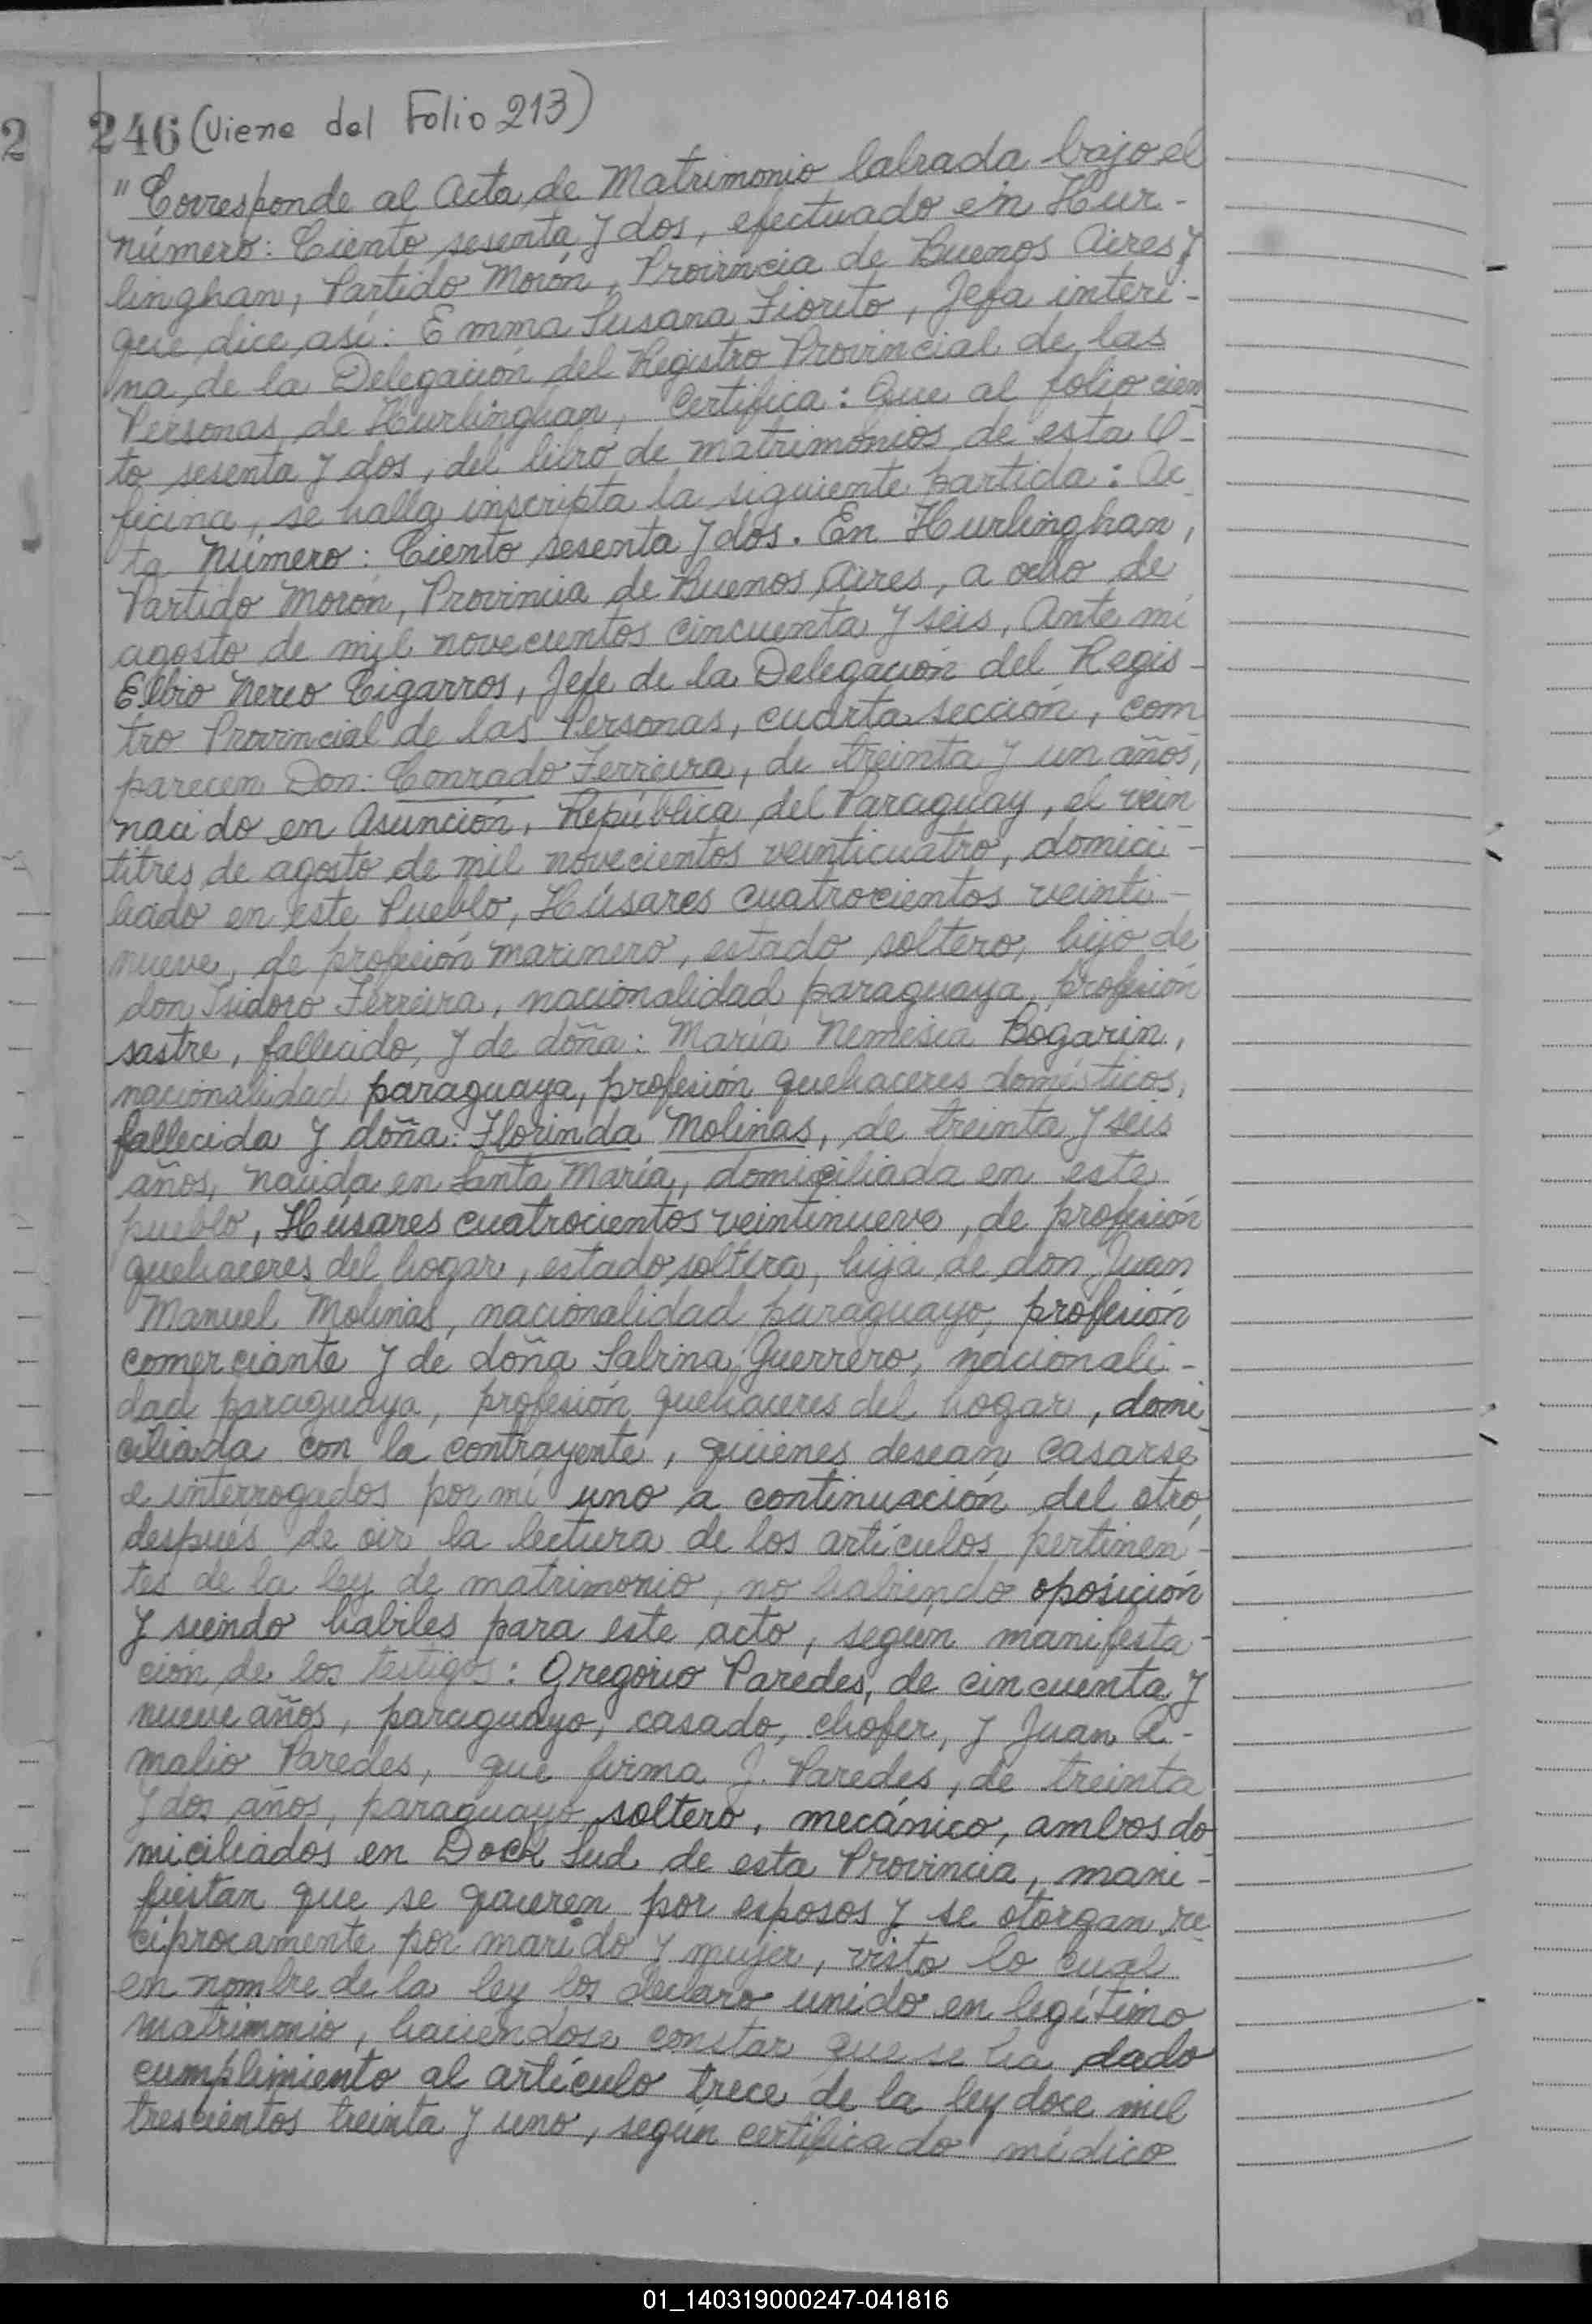 2
246 (Viene del Folio 213)
"Corresponde al Acta de Matrimonio labrada bajo el
número: Ciento sesenta y dos, efectuado en Hur-
linghan, Partido Morón, Provincia de Buenos Aires y
que dice así: Emma Susana Fiorito, Jefa interi-
na de la Delegación del Registro Provincial de las
Personas de Hurlinghan, Certifica: Que al folio cien
to sesenta y dos, del libro de matrimonios de esta O-
ficina, se halla inscripta la siguiente partida: Ac
ta Número: Ciento sesenta y dos. En Hurlinghan,
Partido Morón, Provincia de Buenos Aires, a ocho de
agosto de mil novecientos cincuenta y seis, Ante mi
Elbio Nereo Cigarros, Jefe de la Delegación del Regis-
tro Provincial de las Personas, cuarta sección, com
parecen Don: Conrado Ferreira, de treinta y un años,
nacido en Asunción, República del Paraguay, el vein
titres de agosto de mil novecientos veinticuatro, domici-
liado en este Pueblo, Húsares cuatrocientos veinti-
nueve, de profesión marinero, estado soltero, hijo de
don Isidoro Ferreira, nacionalidad paraguaya, profesión
sastre, fallecido, y de doña: María Nemesia Bogarin,
nacionalidad paraguaya, profesión quehaceres domésticos,
fallecida y doña: Florinda Molinas, de treinta y seis
años, nacida en Santa María, domiciliada en este
pueblo, Húsares cuatrocientos veintinueve, de profesión
quehaceres del hogar, estado soltera, hija de don Juan
Manuel Molinas, nacionalidad paraguayo, profesión
comerciante y de doña Sabrina Guerrero, nacionali-
dad paraguaya, profesión quehaceres del hogar, domi
ciliada con la contrayente, quienes desean casarse
e interrogados por mí uno a continuación del otro,
después de oir la lectura de los artículos pertinen-
tes de la ley de matrimonio, no habiendo oposición
y siendo habiles para este acto, según manifesta-
ción de los testigos: Gregorio Paredes, de cincuenta y
nueve años, paraguayo, casado, chofer, y Juan A-
malio Paredes, que firma J. Paredes, de treinta
y dos años, paraguayo, soltero, mecánico, ambos do
miciliados en Dock Sud de esta Provincia, mani-
fiestan que se quieren por esposos y se otorgan re
ciprocamente por marido y mujer, visto lo cual
en nombre de la ley los declaro unido en legítimo
matrimonio, haciendose constar que se ha dado
cumplimiento al artículo trece de la ley doce mil
trescientos treinta y uno, según certificado médico
01_140319000247-041816